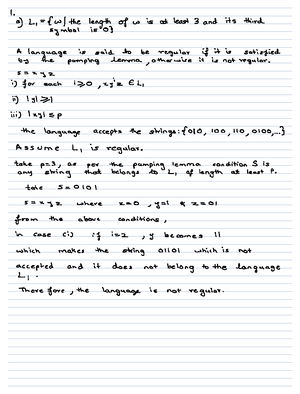 1.
a) L₁ = {w| the length of w is at least 3 and its third
symbol is 0}
A language is said to be regular if it is satisfied
by the pumping lemma, otherwise it is not regular.
s = xyz
i) for each i≥0, xyⁱz ∈ L₁
ii) |y| ≥ 1
iii) |xy| ≤ p
the language accepts the strings: {010, 100, 110, 0100,...}
Assume L₁ is regular.
take p=3, as per the pumping lemma condition S is
any string that belongs to L₁ of length at least P.
take S = 0101
s = xyz where x=0, y=1 & z=01
from the above conditions,
in case (i) if i=2, y becomes 11
which makes the string 01101 which is not
accepted and it does not belong to the language
L₁.
Therefore, the language is not regular.